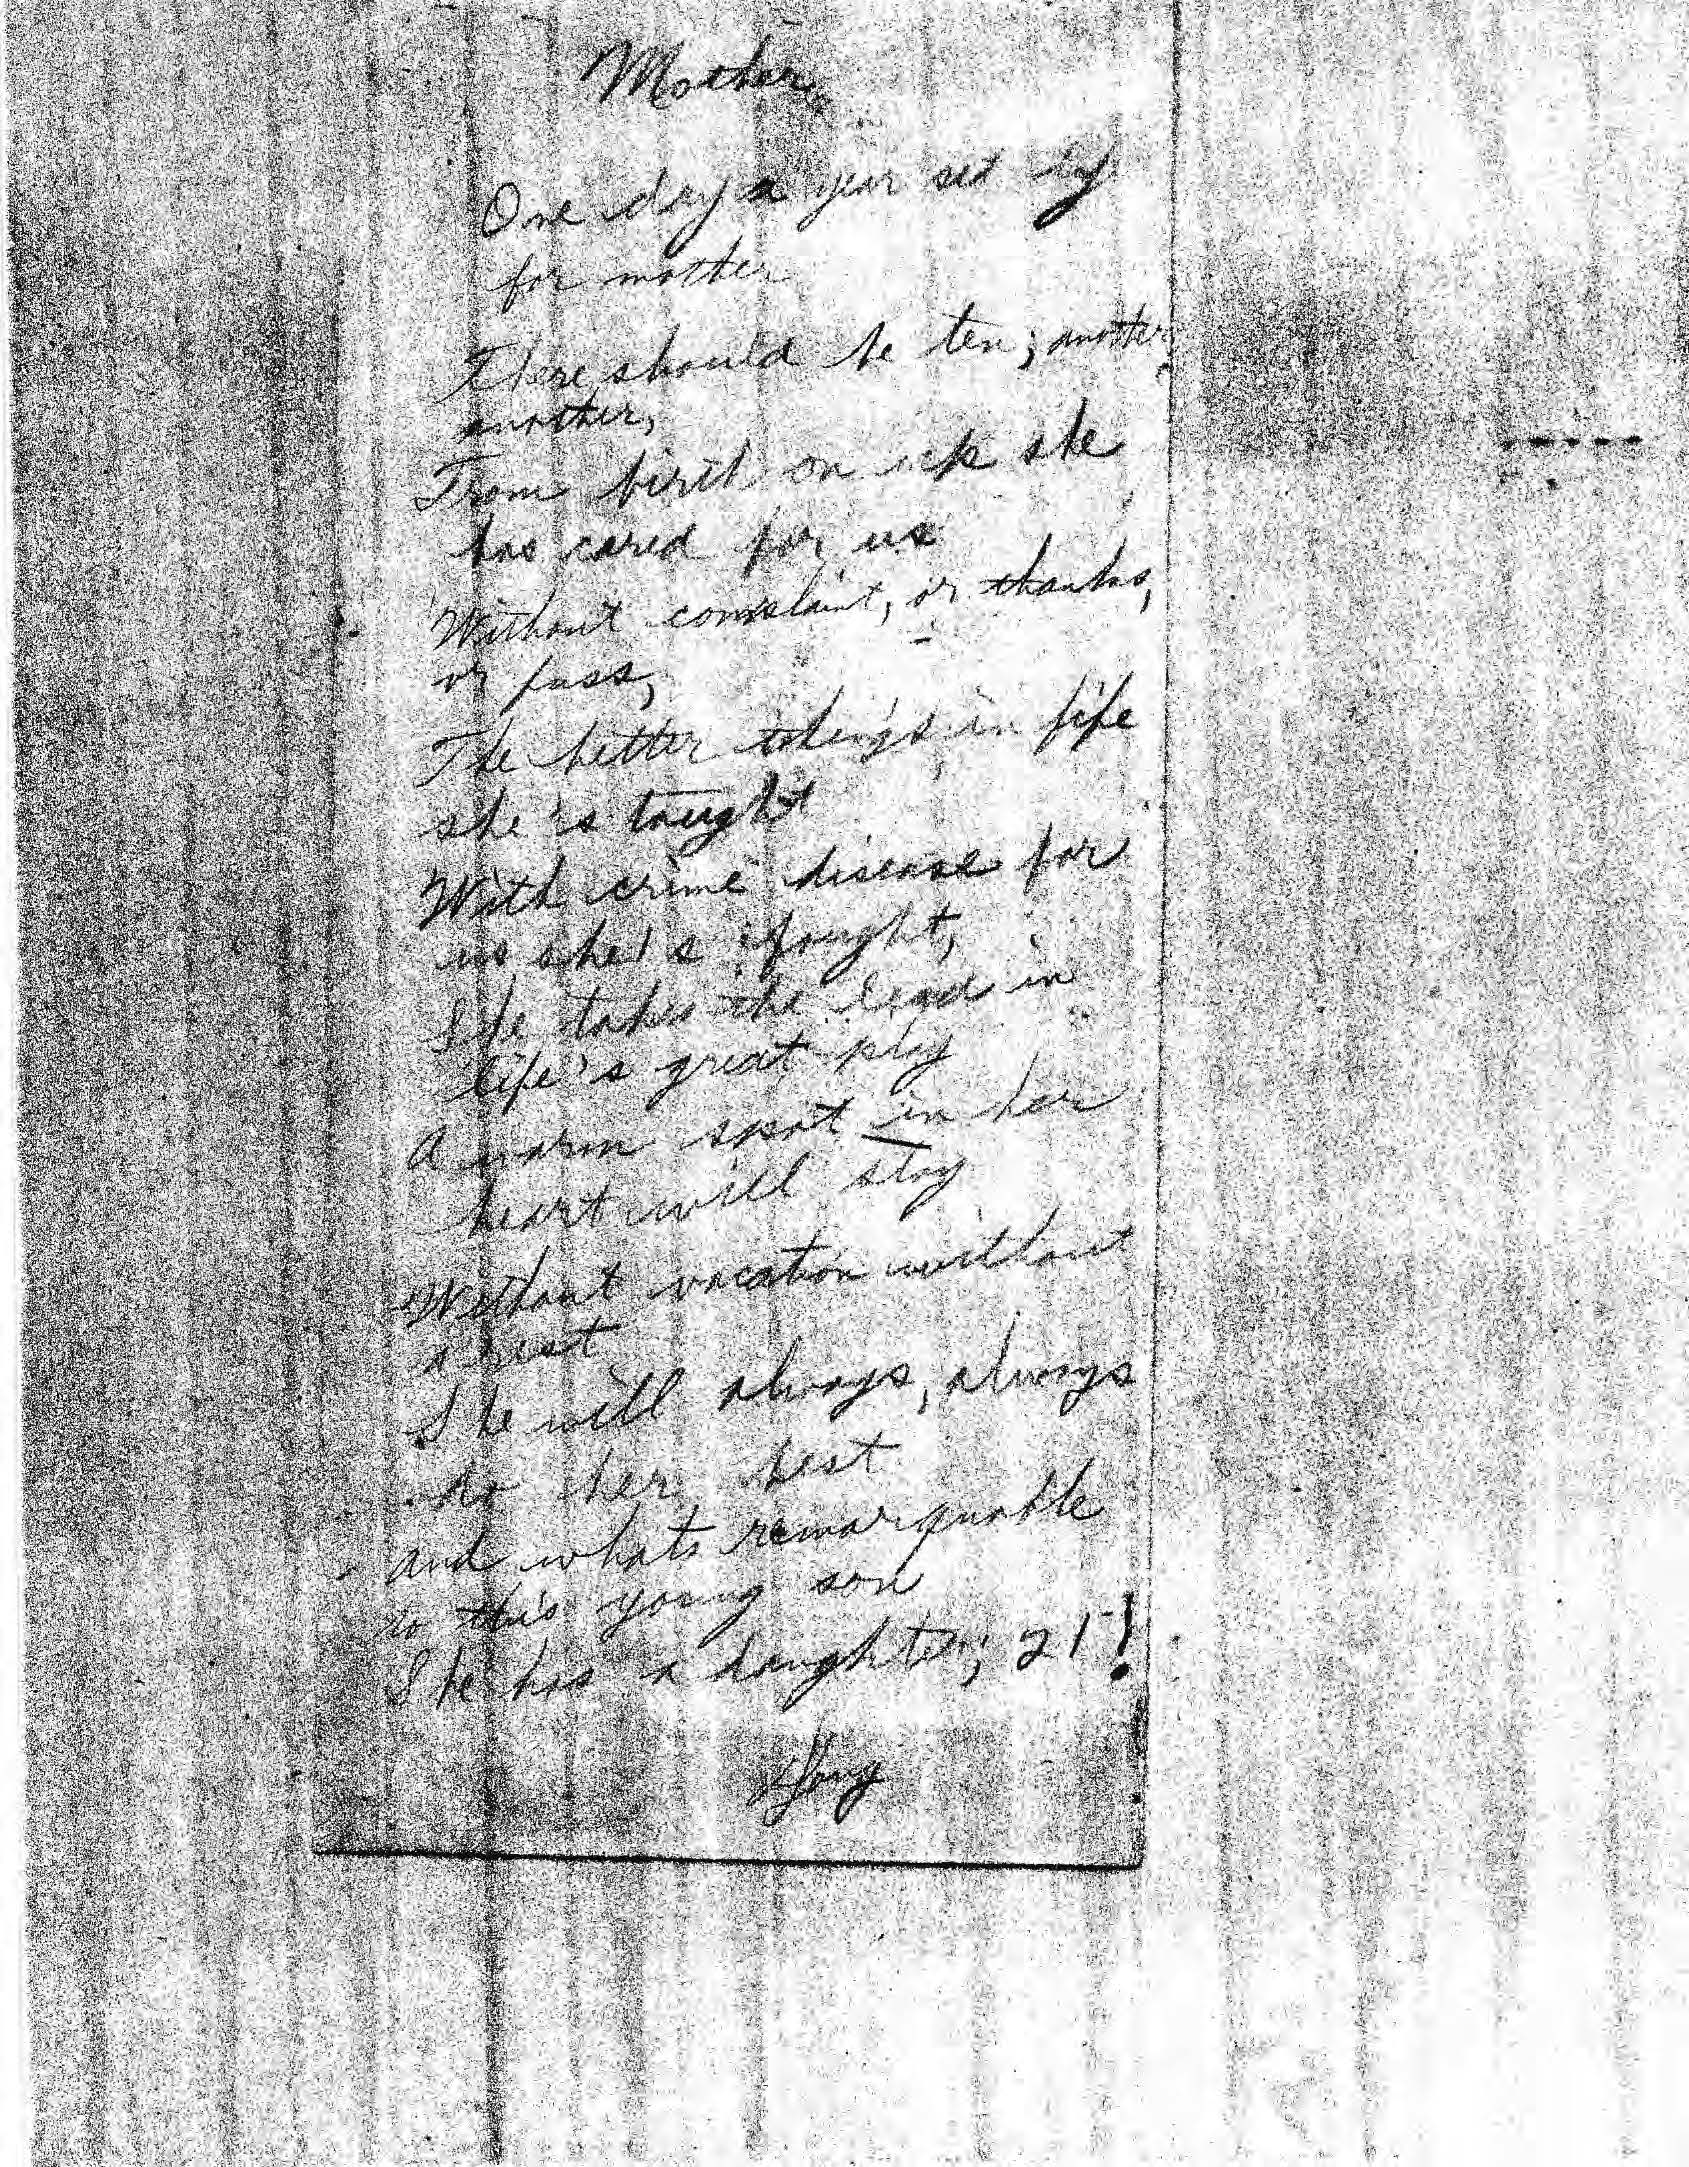 Mother
One day a year set by
for mother
There should be ten; another
another,
From birth on up she
has cared for us
Without complaint, or thanks,
or fuss,
The better things in life
she's taught
With crime disease for
us she's fought,
She takes the lead in
life's great play
A warm spot in her
heart will stay
Without vacation without
a rest
She will always, always
do her best
and whats remarquable
to this young son
She has a daughter, 21!